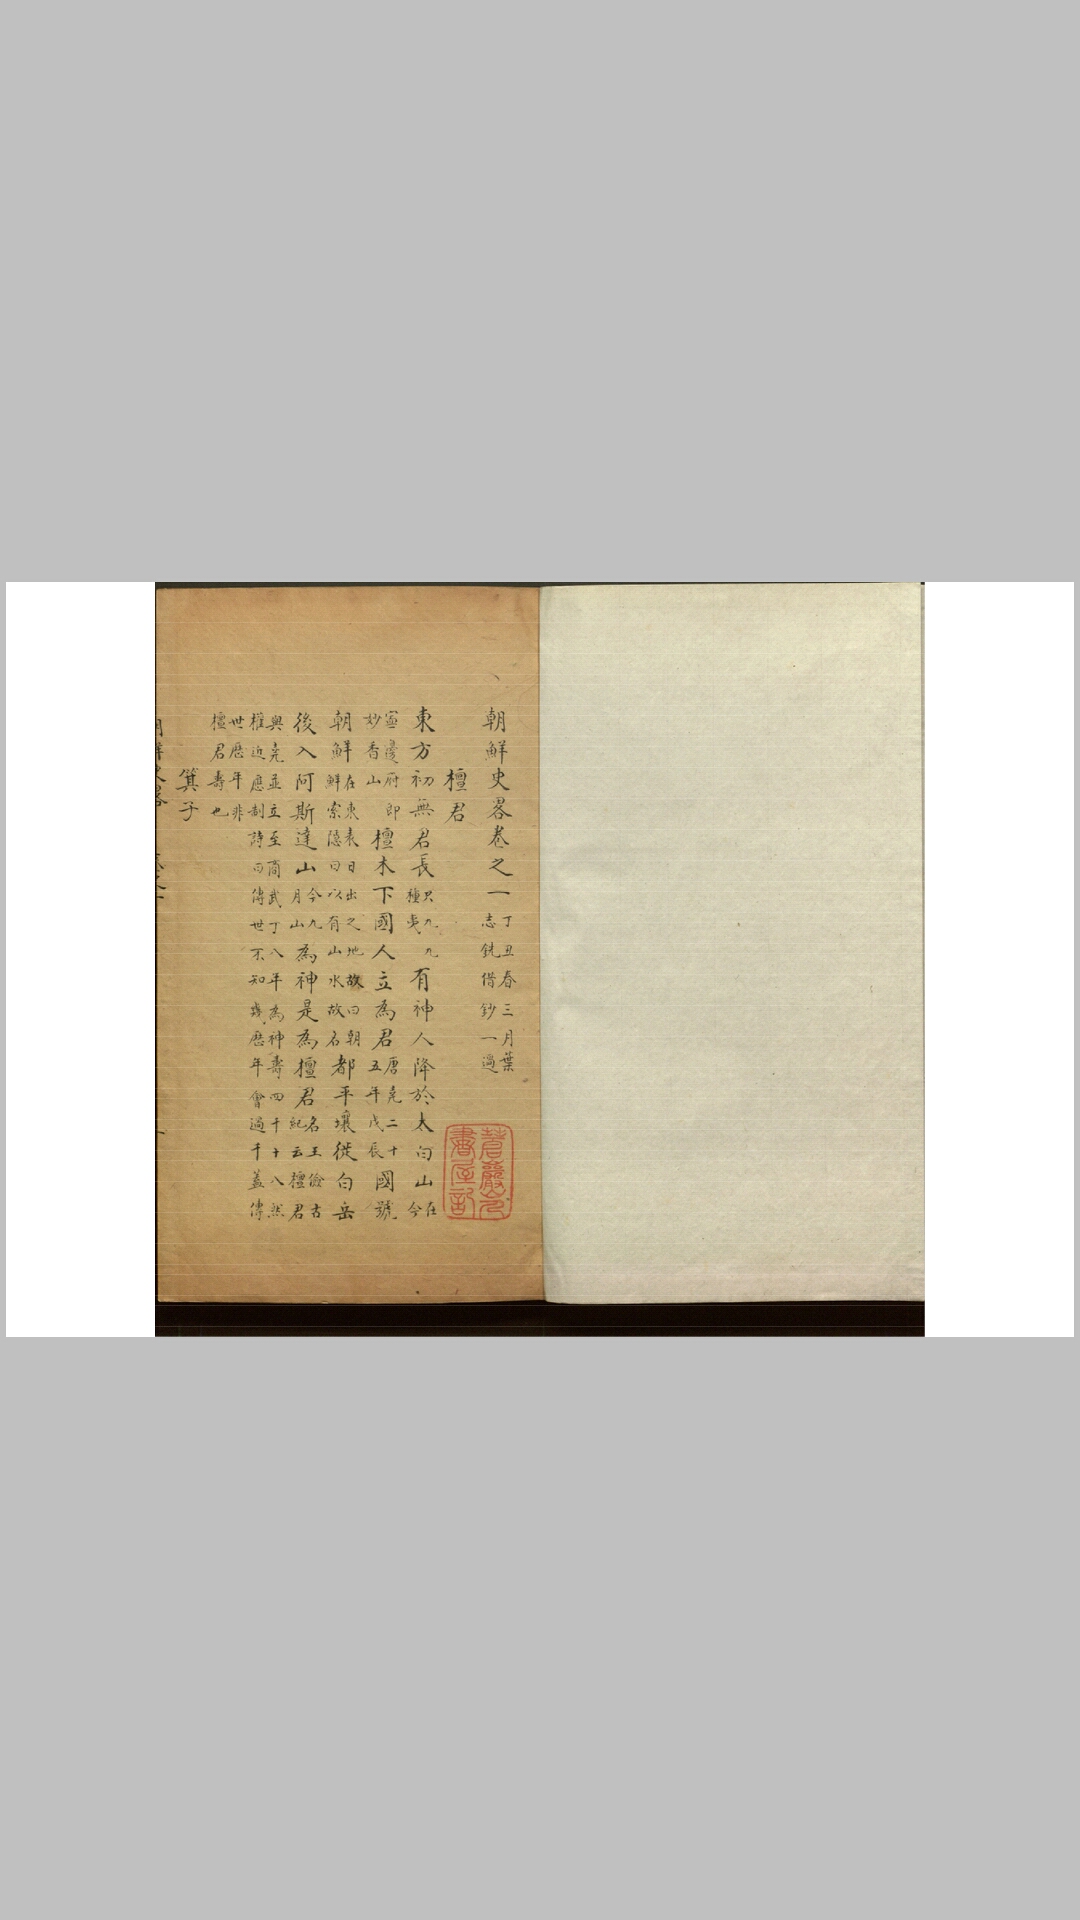 朝鮮史畧卷之一 丁丑春三月葉
志銑借鈔一過
檀君
東方初無君長 只九
種夷九 有神人降於太白山 在
今
寧邊府即
妙香山 檀木下國人立為君 唐堯二十
五年戊辰 國號
朝鮮 在東表日出之地故曰朝
鮮索隱曰以有山水故名 都平壤徙白岳
後入阿斯達山 今九
月山 為神是為檀君 名王儉古
紀云檀君
與堯並立至商武丁八年為神壽四千十八然
權近應制詩曰傳世不知幾歷年會過千蓋傳
世歷年非
檀君壽也
箕子